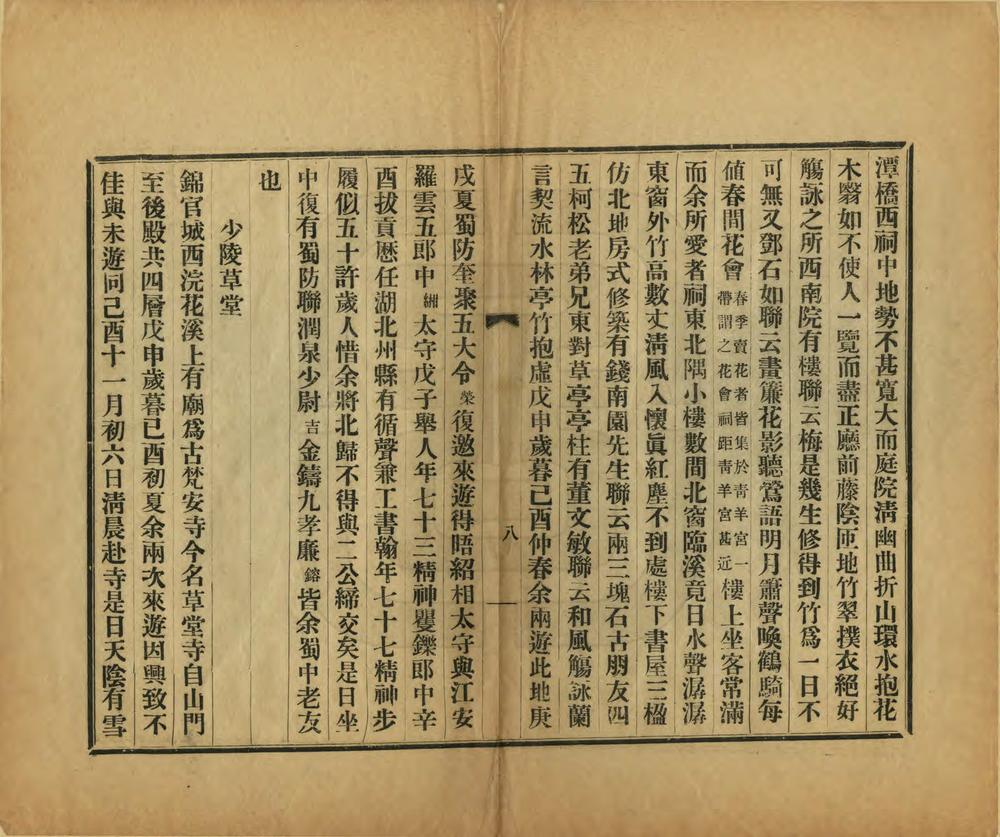 潭橋西祠中地勢不甚寬大而庭院淸幽曲折山環水抱花
木翳如不使人一覽而盡正廳前藤陰匝地竹翠撲衣絕好
觴詠之所西南院有樓聯云梅是幾生修得到竹爲一日不
可無又鄧石如聯云畫簾花影聽鶯語明月簫聲喚鶴騎每
値春間花會春季賣花者皆集於靑羊宮一帶謂之花會祠距靑羊宮甚近樓上坐客常滿
而余所愛者祠東北隅小樓數間北窗臨溪竟日水聲潺潺
東窗外竹高數丈淸風入懷眞紅塵不到處樓下書屋三楹
仿北地房式修築有錢南園先生聯云兩三塊石古朋友四
五柯松老弟兄東對草亭亭柱有董文敏聯云和風觴詠蘭
言契流水林亭竹抱虛戊申歲暮己酉仲春余兩遊此地庚
八
戌夏蜀防奎聚五大令榮復邀來遊得晤紹相太守與江安
羅雲五郎中緗太守戊子舉人年七十三精神矍鑠郎中辛
酉拔貢歷任湖北州縣有循聲兼工書翰年七十七精神步
履似五十許歲人惜余將北歸不得與二公締交矣是日坐
中復有蜀防聯潤泉少尉吉金鑄九孝廉鎔皆余蜀中老友
也
少陵草堂
錦官城西浣花溪上有廟爲古梵安寺今名草堂寺自山門
至後殿共四層戊申歲暮己酉初夏余兩次來遊因興致不
佳與未遊同己酉十一月初六日淸晨赴寺是日天陰有雪